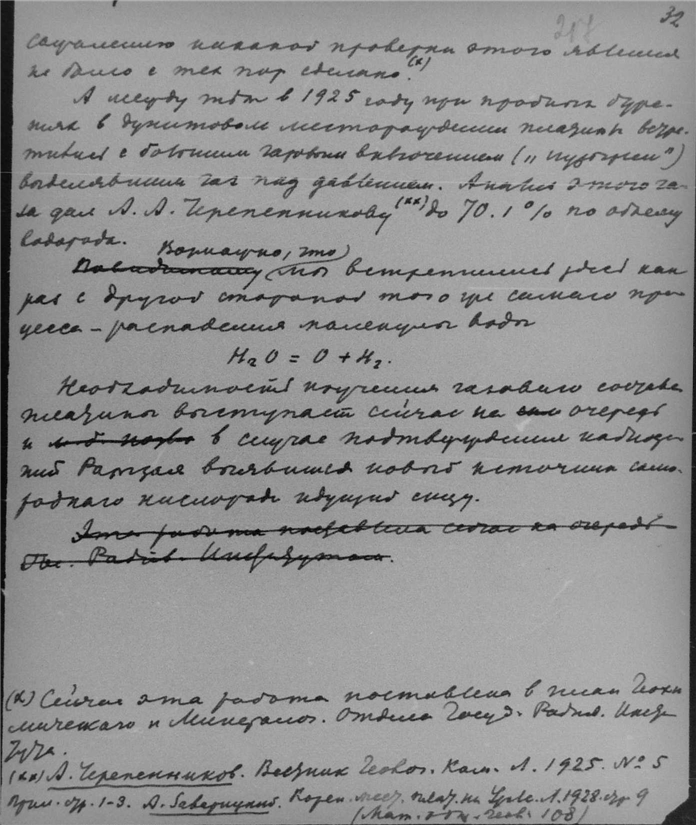 32
сожалению никакой проверки этого явления
не было с тех пор сделано.(х)
А между тем в 1925 году при пробном буре-
нии в дунитовом месторождении платины встре-
тились с большим газовым включением („пузырем")
выделявшим газ под давлением. Анализ этого га-
за дал А. А. Черепенникову(хх) до 70.1% по объему
водорода.
Возможно, что
Повидимому мы встретились здесь как
раз с другой стороной того же самого про-
цесса – распадения молекулы воды
H2O = O + H2.
Необходимость изучения газового состава
платины выступает сейчас на очередь
и в случае подтверждения наблюде-
ний Рамзая выявился новый источник само-
родного кислорода идущий снизу.
Эта работа поставлена сейчас на очередь
Гос. Радиев. Институтом.
(х) Сейчас эта работа поставлена в план Геохи
мического и Минералог. Отдела Госуд. Радиев. Инсти
тута.
(хх) А. Черепенников. Вестник Геолог. Ком. Л. 1925. № 5
прим. стр. 1-3. А. Заварицкий. Корен. мест. плат. на Урале. Л. 1928. стр 9
(Мат. общ. геол. 108)